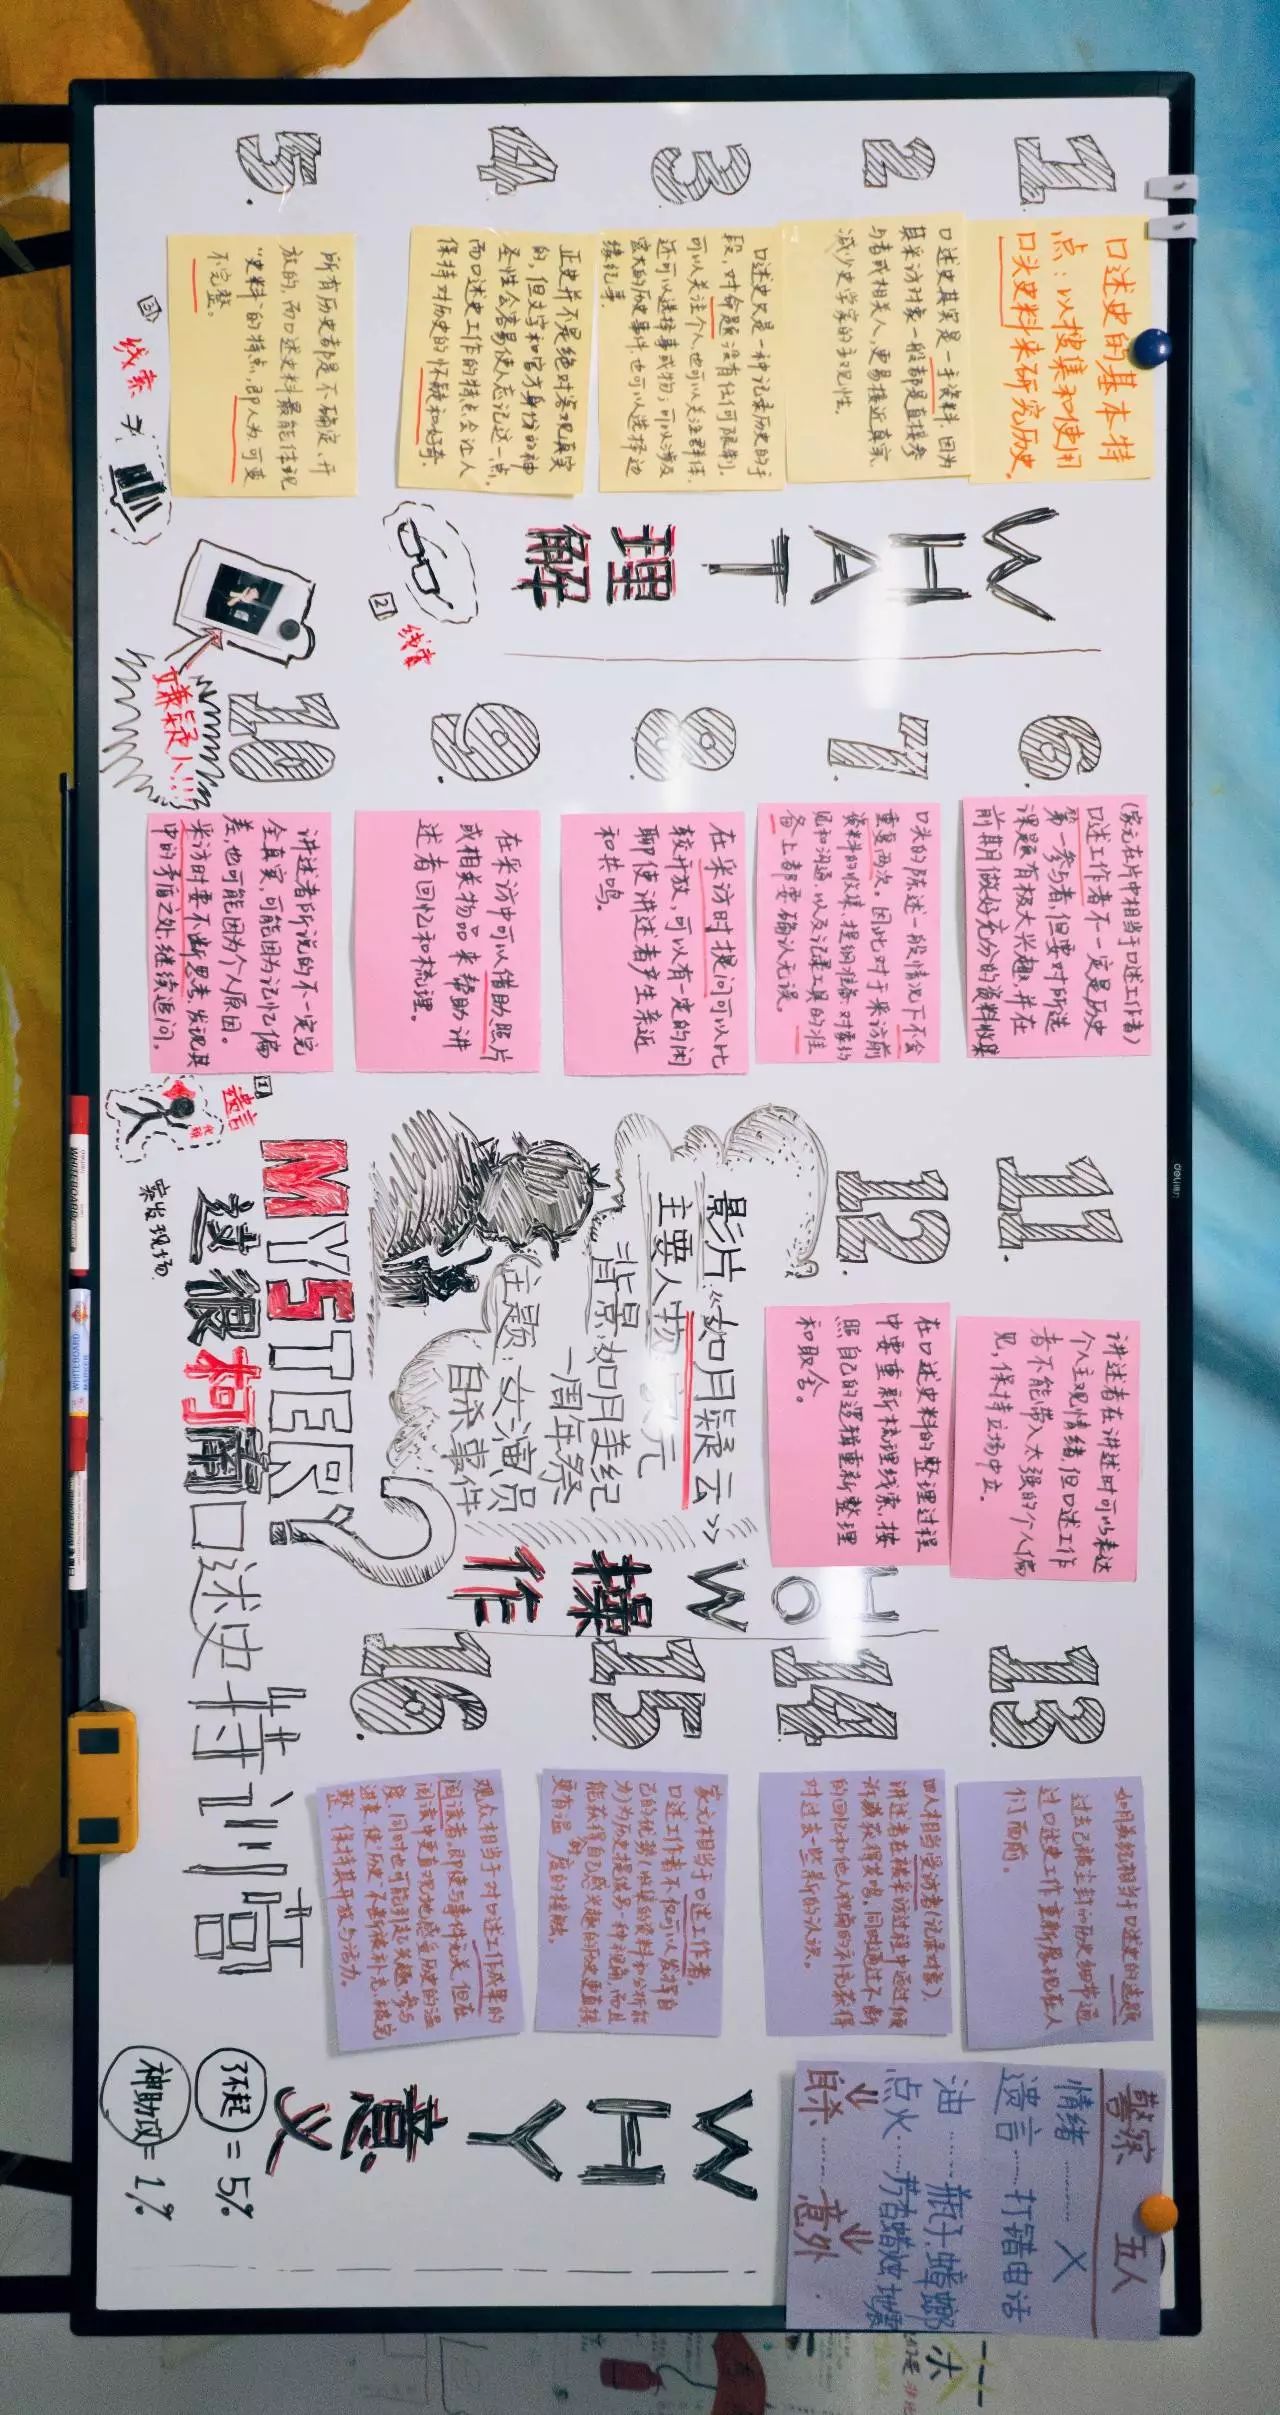 1.
口述史的基本特
点：以搜集和使用
口头史料来研究历史。
2.
口述史其实是一手资料，因为
其采访对象一般都是直接参
与者或相关人，更易接近真实，
减少史学家的主观性。
3.
口述史又是一种记录历史的手
段，对命题没有任何限制。
可以关注个人也可以关注群体，
还可以选择事或物；可以涉及
宏大的历史事件，也可以选择边
缘纪事。
4.
正史并不是绝对客观真实
的，但文字和官方身份的神
圣性会容易使人忘记这一点。
而口述史工作的特点会让人
保持对历史的怀疑和好奇。
5.
所有历史都是不确定、开
放的，而口述史料最能体现
“史料”的特点，即人为、可变
不完整。
WHAT
理解
6.
(家元在片中相当于口述工作者)
口述工作者不一定是历史
第一参与者，但要对所选
课题有极大兴趣，并在
前期做好充份的资料收集
7.
口头的陈述一般情况下不会
重复两次。因此对于采访前
资料的收集、提纲准备、对事的
见和沟通，以及记录工具的准
备上都要确认无误。
8.
在采访时提问可以比
较开放，可以有一定的闲
聊使讲述者产生亲近
和共鸣。
9.
在采访中可以借助照片
或相关物品来帮助讲
述者回忆和梳理。
10
讲述者所说的不一定完
全真实，可能因为记忆偏
差，也可能因为个人原因。
采访时要不断思考，发现其
中的矛盾之处继续追问。
11.
讲述者在讲述时可以表达
个人主观情绪，但口述工作
者不能带入太强的个人偏
见，保持立场中立。
12.
在口述史料的整理过程
中要重新梳理线索，按
照自己的逻辑重新整理
和取舍。
HOW
操作
影片《如月疑云》
主要人物：家元
背景：如月美纪
一周年祭
主题：女演员
自杀事件
13.
如月美纪相当于口述史的选题
过去已被尘封的历史细节通
过口述史工作，重新展现在人
们面前。
14.
四人相当受访者(记录对象)，
讲述者在接采访过程中通过倾
诉或获得共鸣，同时通过不断
的回忆和他人视角的补充获得
对过去一些新的认识。
15.
家元相当于口述工作者。
口述工作者不仅可以发挥自
己的优势(收集的资料和分析能
力)为历史提供另一种视角，而且
能获得与自己感兴趣的历史更直接，
更有温度的接触。
16.
观众相当于对口述工作成果的
阅读者。即使与事件无关，但在
阅读中更直观地感受历史的温
度，同时也可能引起兴趣，参与
进来，使“历史”不断被补充，被完
整，保持其开放与活力。
WHY
意义
警察 五人
情绪……X
遗言……打错电话
油……瓶子，蟑螂
点火……芳香蜡烛，地震
自杀……意外
3 线索
2 线索
嫌疑人!!!
1 遗言
案发现场
MYSTERY?
这很柯南
口述史特训营
了不起=5%
神助攻=1%
deli
WHITEBOARD